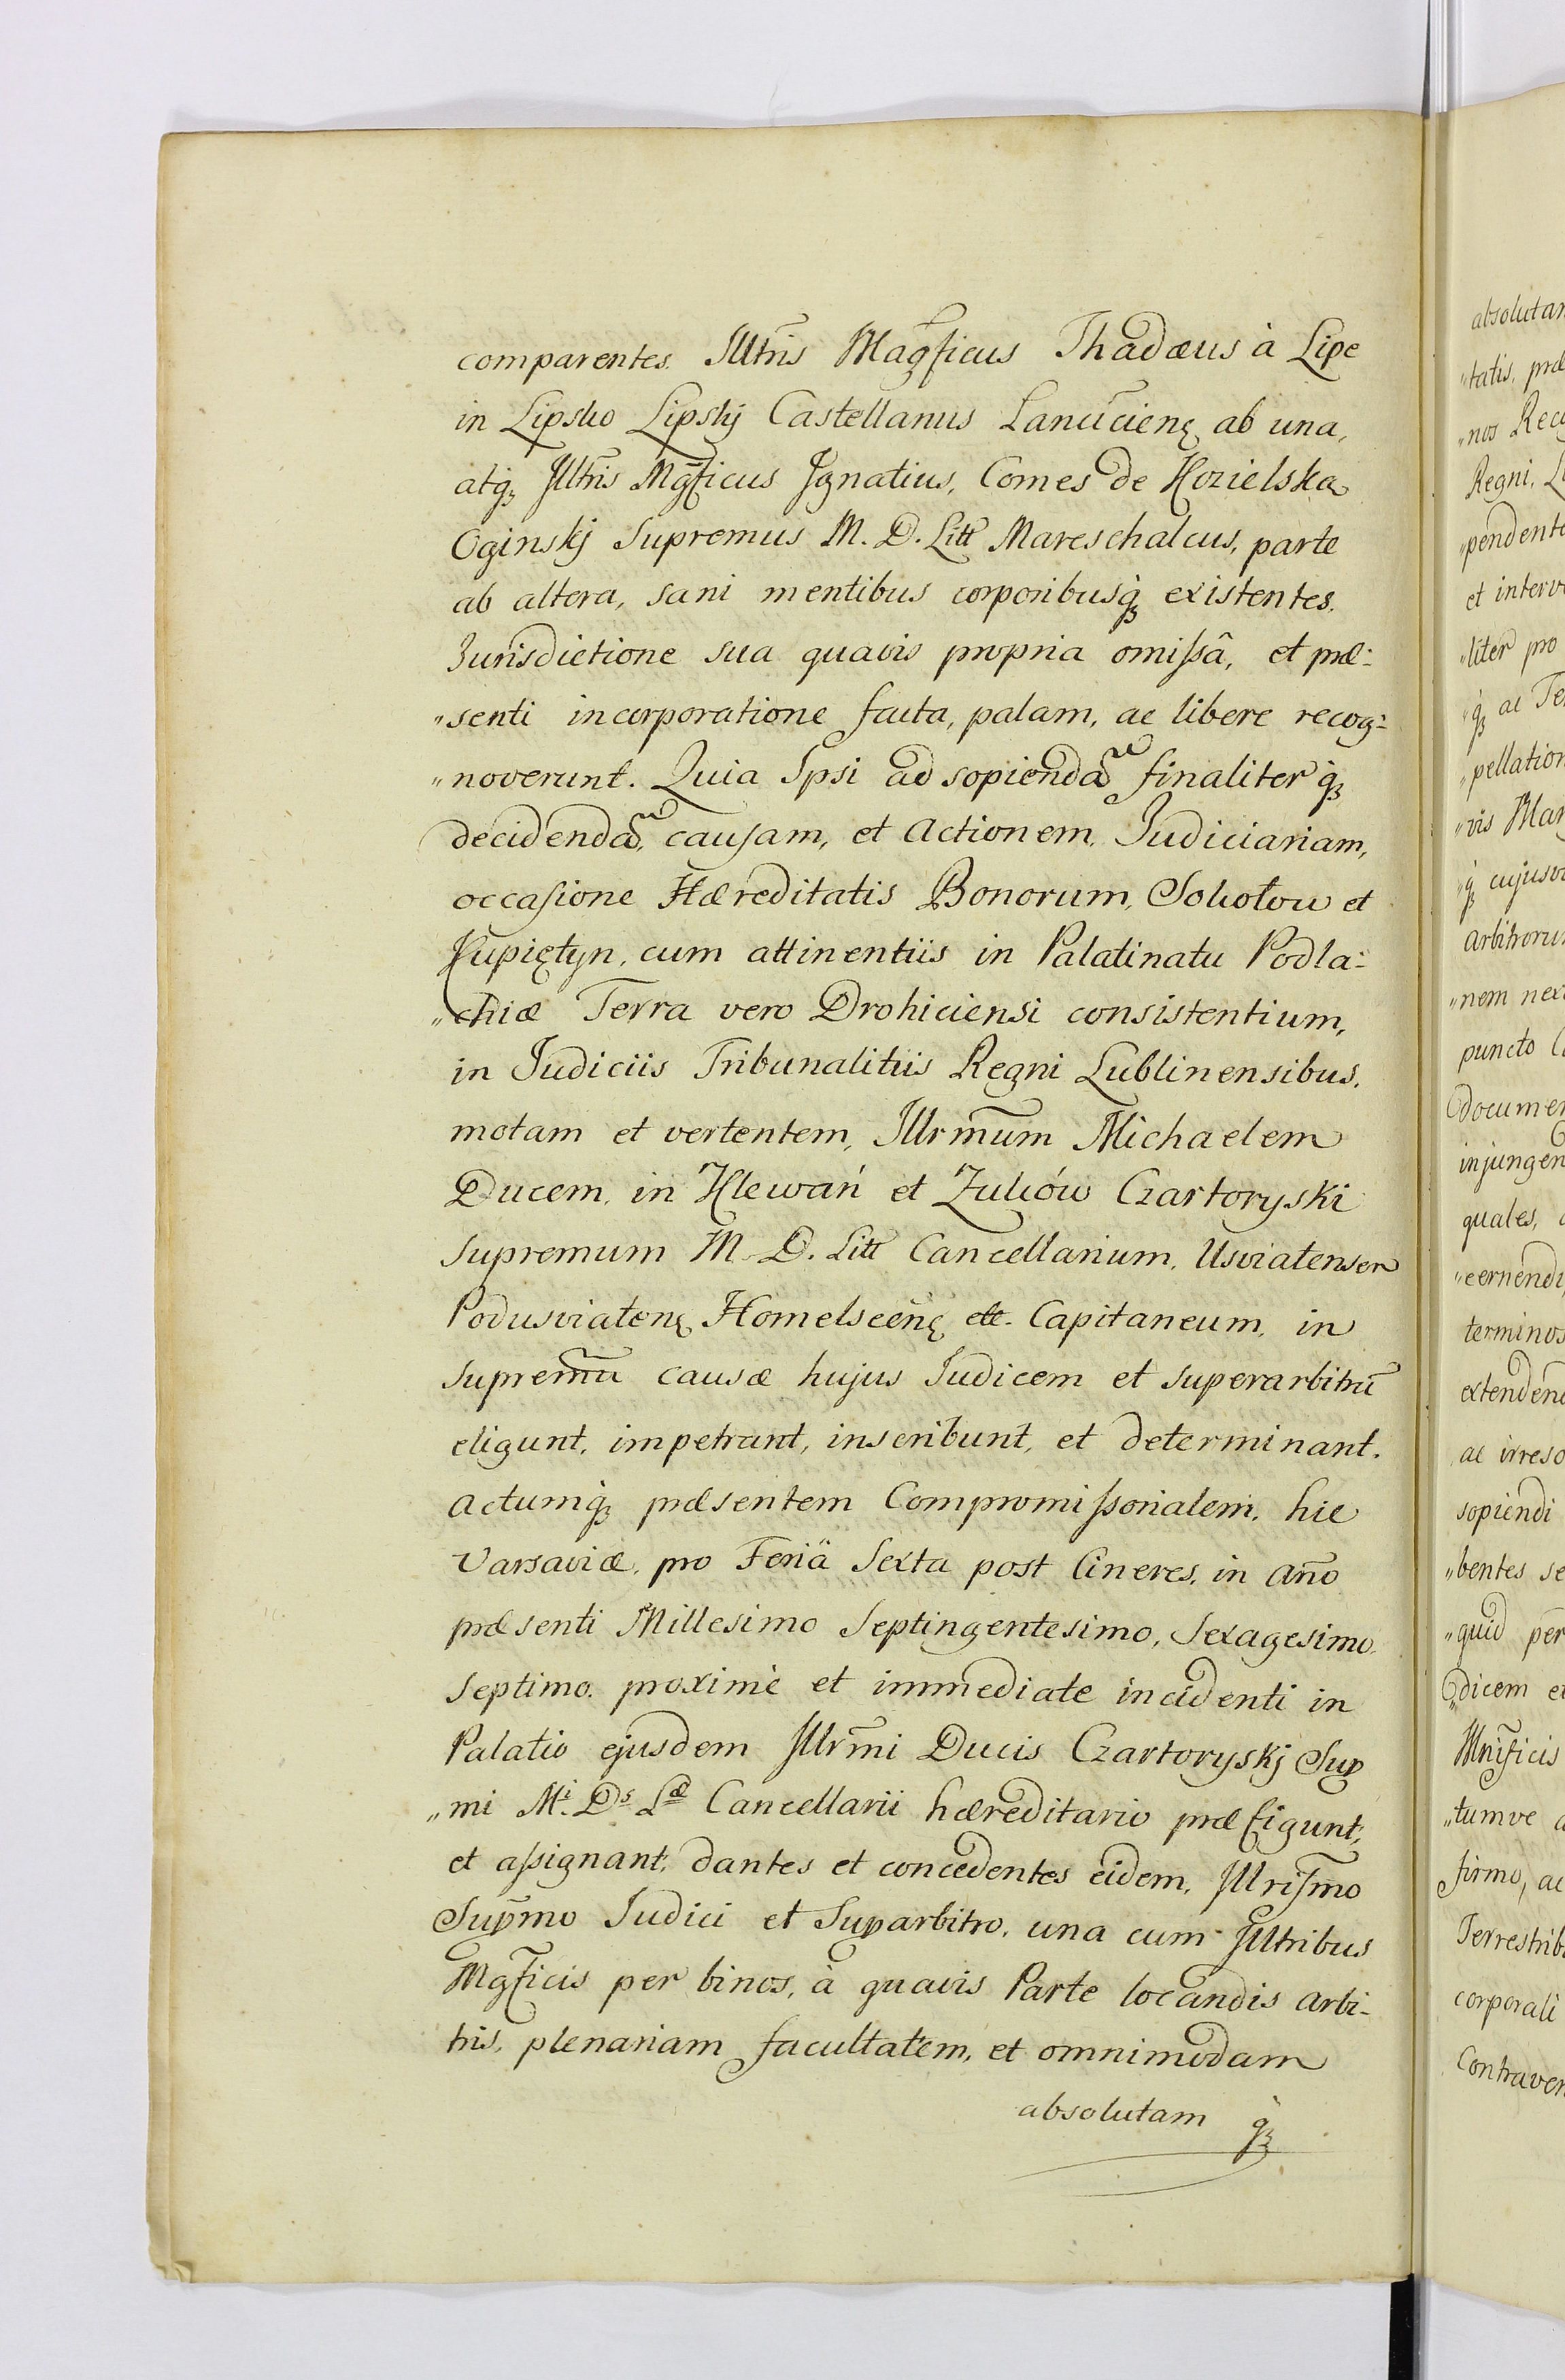 comparentes. Illtris Magficus Thadæus à Lipe
in Lipsko Lipskj Castellanus Lanúciens ab una,
atq; Illtris Mgficus Ignatius, Comes de Kozielska
Oginskj Supremus M. D. Litt Mareschalcus, parte
ab altera, sani mentibus corporibusq; existentes.
Jurisdictione sua quavis propria omissâ, et præ-
"senti incorporatione facta, palam, ac libere recog-
"noverunt. Quia Ipsi ad sopiendam finaliter q;
decidendam, causam, et Actionem, Judiciariam,
occasione Hæreditatis Bonorum, Sokołow et
Kupiętyn, cum attinentiis in Palatinatu Podla-
"chiæ Terra vero Drohiciensi consistentium,
in Judiciis Tribunalitiis Regni Lublinensibus,
motam et vertentem, Illrmum Michaelem
Ducem, in Klewań et Żuków Czartoryski
Supremum M. D. Litt Cancellarium, Usviatensem
Podusviatens Homelscens etc. Capitaneum, in
Supremū causæ hujus Judicem et Superarbitrū
eligunt, impetrant, inscribunt, et determinant.
Actumq; præsentem Compromissorialem, hic
Varsaviæ, pro Feriä Sexta post Cineres, in Año
præsenti Millesimo Septingentesimo, Sexagesimo
Septimo, proximè et immediate incidenti in
Palatio ejusdem Illrmi Ducis Czartoryskj Sup
"mi Mi. Ds Læ Cancellarii hæreditario præfigunt,
et assignant, dantes et concedentes eidem, Illrismo
Supmo Judici et Suparbitro, una cum Illtribus
Mgficis per binos, à quavis Parte locandis Arbi-
tris, plenariam facultatem, et omnimodam
absolutam q;
absolutam
"tatis, præ
"nos Reco
Regni, L
"pendente
et interv
"liter pro
"q; ac Te
"pellation
"vis Mar
"q; cujusv
Arbitroru
"nem nex
puncto C
documen
injungen
quales,
"cernendi,
terminos
extendend
ac irreso
sopiendi
"bentes se
"quid per
"dicem et
Mnificis
"tumve a
firmo, ac
Terrestrib
corporali
Contraven